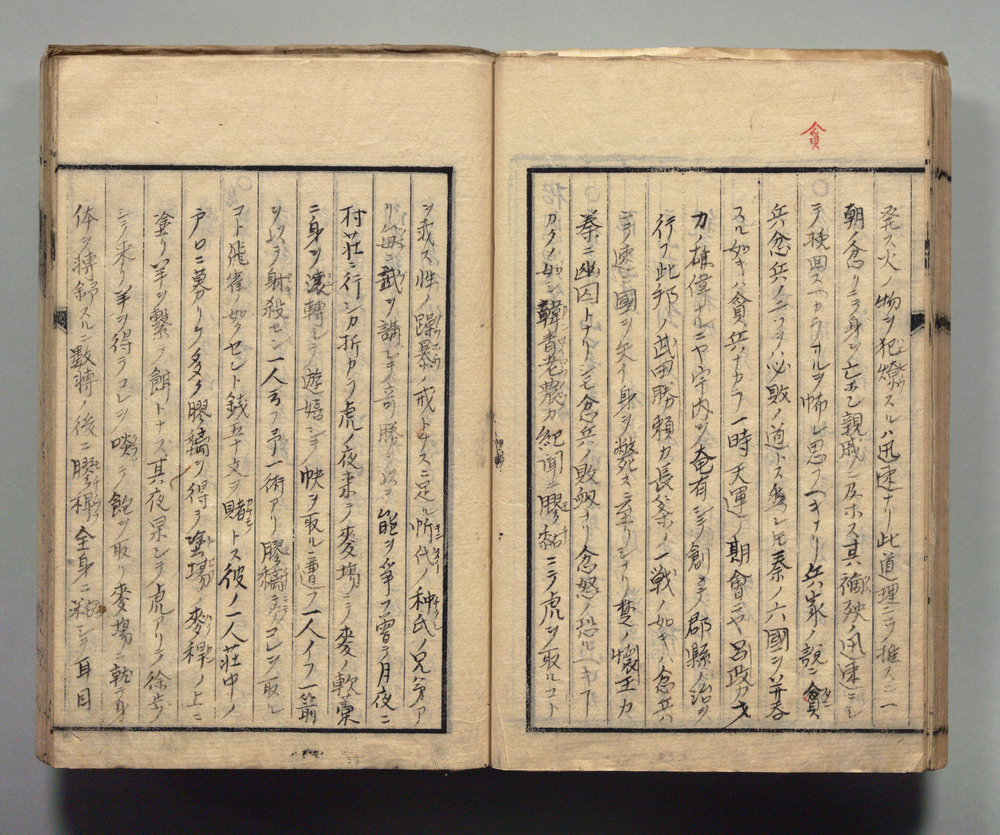 貪
発スル火ノ物ヲ犯燎スルハ迅速ナリ此道理ニテ推スニ一
朝ノ忿リニテ身ヲ亡ボシ親戚ニ及ホス其禍殃迅速ニシ
テ挽回スヘカラサルヲ怖レ思フヘキナリ兵家ノ説ニ貪
兵忿兵ノ二ツヲ必敗ノ道トス然レモ秦ノ六國ヲ并呑
スル如キハ貪兵ナカラ一時天運ノ期會ニヤ呂政カ才
力ノ雄偉ナルニヤ宇内ヲ奄有シテ創メテ郡縣ノ治ヲ
行フ此邦ノ武田勝頼カ長篠ノ一戦ノ如キハ忿兵
ニテ速ニ國ヲ失イ身ヲ斃スニ至リシナリ楚ノ懐王カ
秦ニ幽囚トナリシモ忿兵ノ敗衂ナリ忿怒ノ恐ルヘキフ
カクノ如シ韓青老農カ紀聞ニ膠黏ニテ虎ヲ取ルコト
ヲ戒ス性ノ躁暴ノ戒トナスニ足ル忻代ノ种氏ノ兄弟ア
リ毎ニ武ヲ講シテ奇勝ヲ以テ能ヲ争フ雪ノ月夜ニ
村荘ニ行シカ折カラ虎ノ夜来テ麥場ニテ麥ノ軟藁
ニ身ヲ滾轉シテ遊嬉シテ快ヲ取ルニ遭フ一人イフ一箭
ヲ以テ射殺セン一人云フ予一術アリ膠黐コレヲ取ル
コト飛雀ノ如クセント銭五十文ヲ賭トス彼ノ二人荘中ノ
戸口ニ募リテ多ク膠黐ヲ得テ塗場ノ麥稈ノ上ニ
塗リ羊ヲ繋テ餌トナス其夜果シテ虎アリテ徐歩
シテ来リ羊ヲ得テコレヲ啖テ飽ヲ取リ麥場ニ就テ身
体ヲ轉舒スルニ数轉ノ後ニ膠稈全身ニ粘シテ耳目